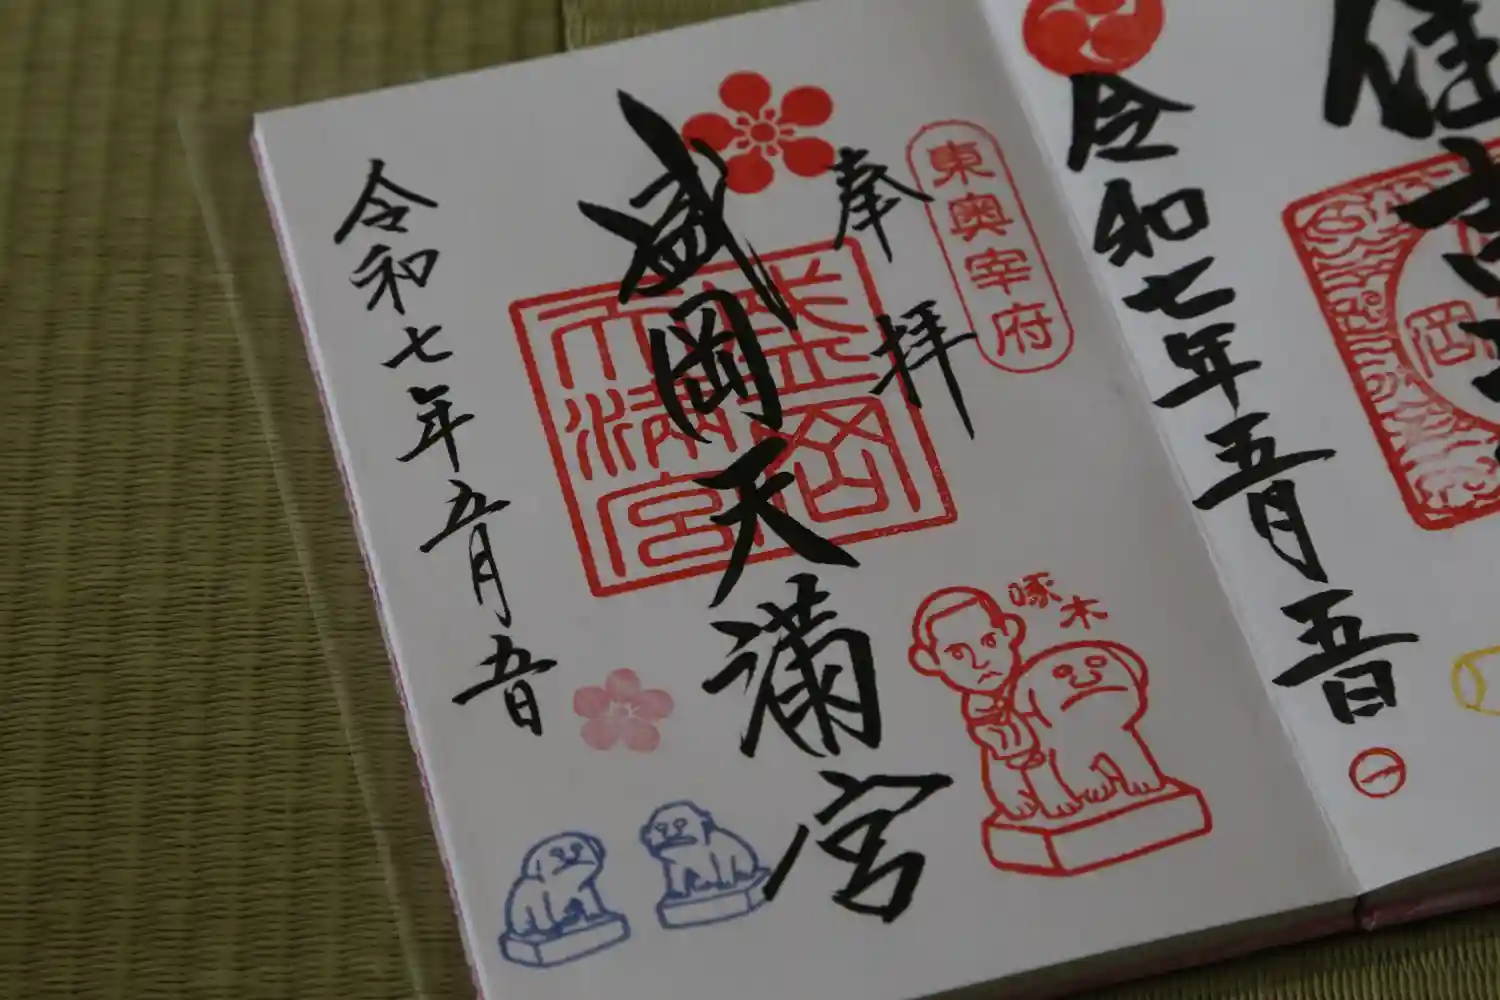 住吉
令和七年五月五日
岡
一
東奥宰府
奉拝
盛岡天満宮
盛岡
天満宮
啄木
令和七年五月五日